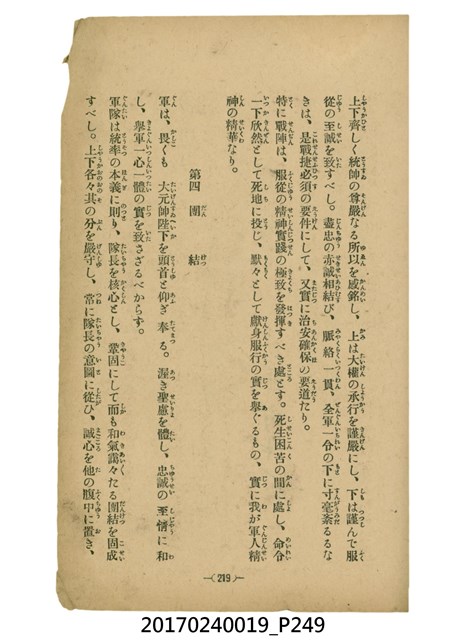 上下齊しく統帥の尊嚴なる所以を感銘し、上は大權の承行を謹嚴にし、下は謹んで服
從の至誠を致すべし。盡忠の赤誠相結び、脈絡一貫、全軍一令の下に寸毫紊るるな
きは、是戰捷必須の要件にして、又實に治安確保の要道たり。
特に戰陣は、服從の精神實踐の極致を發揮すべき處とす。死生困苦の間に處し、命令
一下欣然として死地に投じ、默々として獻身服行の實を擧ぐるもの、實に我が軍人精
神の精華なり。
第四 團結
軍は、畏くも 大元帥陛下を頭首と仰ぎ奉る。渥き聖慮を體し、忠誠の至情に和
し、擧軍一心一體の實を致さざるべからず。
軍隊は統率の本義に則り、隊長を核心とし、鞏固にして而も和氣靄々たる團結を固成
すべし。上下各々其の分を嚴守し、常に隊長の意圖に從ひ、誠心を他の腹中に置き、
—(219)—
20170240019_P249